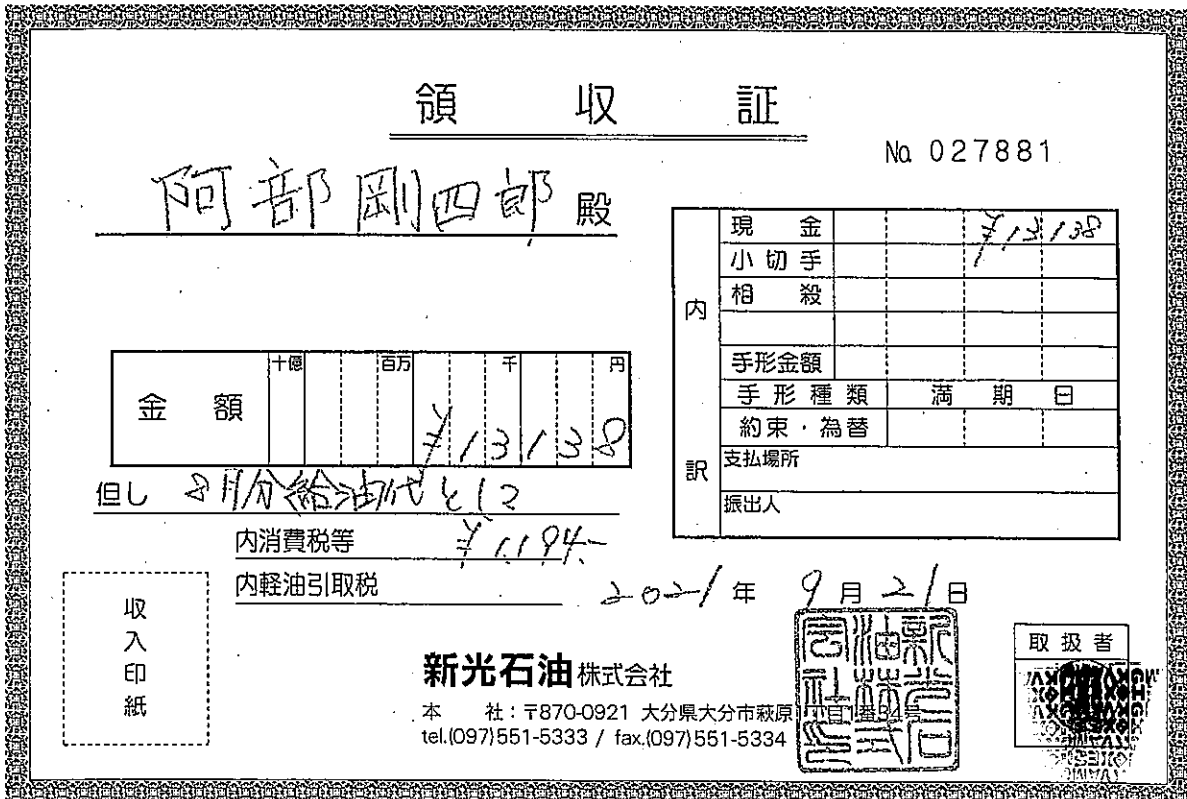 領収証
No 027881
阿部剛四郎 殿
金額 十億 百万 千 円
¥13138
但し 8月分給油代として
内消費税等 ¥1,194-
内軽油引取税
内訳
現金 ¥13138
小切手
相殺
手形金額
手形種類 満期日
約束・為替
支払場所
振出人
2021年9月21日
収入印紙
新光石油株式会社
本社:〒870-0921 大分県大分市萩原
tel.(097)551-5333 / fax.(097)551-5334
新光石油株式会社
取扱者